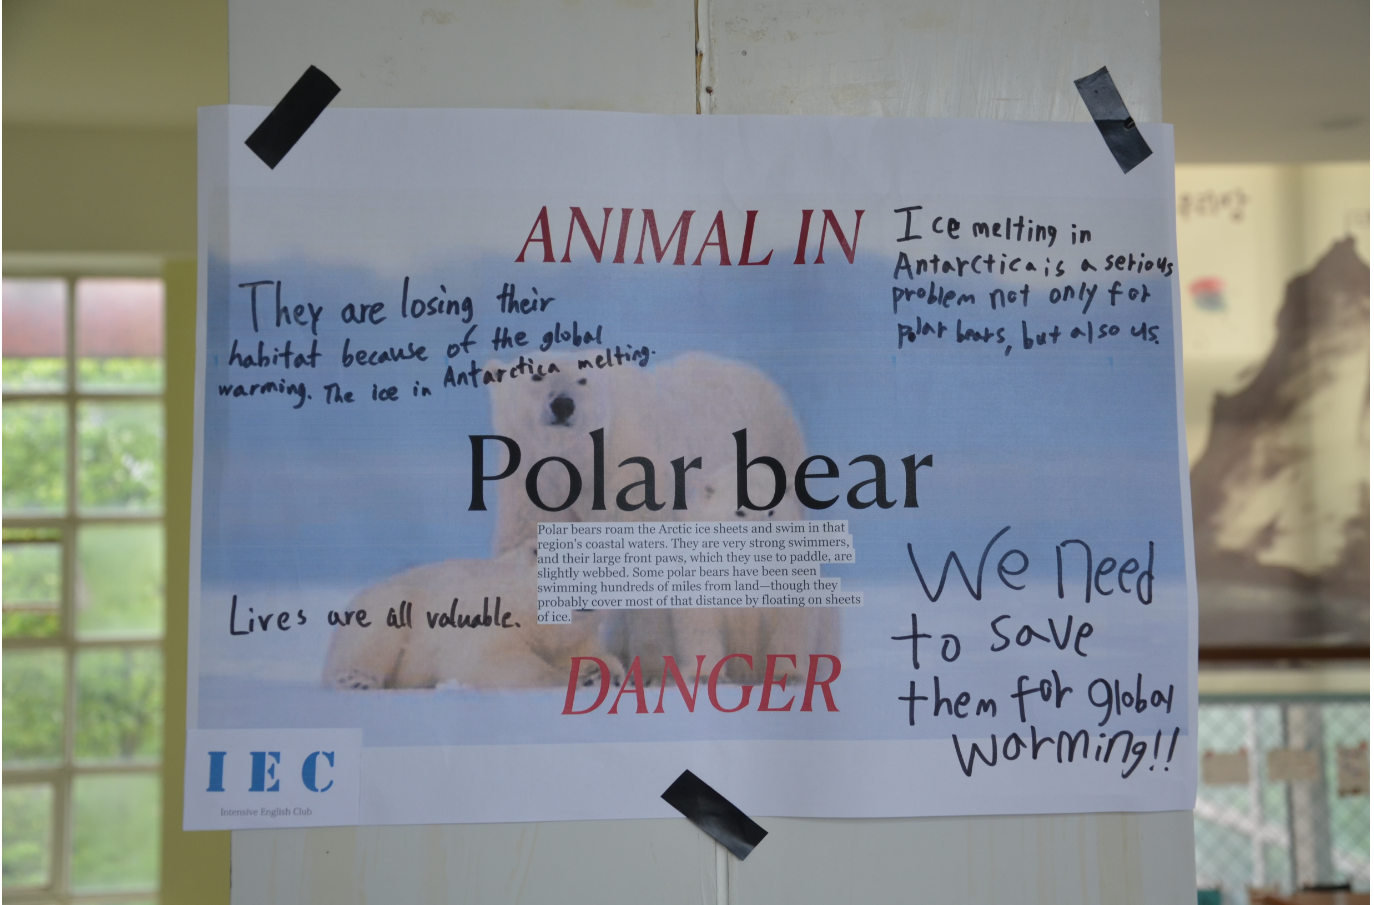 ANIMAL IN
They are losing their
habitat because of the global
warming. The ice in Antarctica melting.
Ice melting in
Antarctica is a serious
problem not only for
polar bears, but also us.
Polar bear
Polar bears roam the Arctic ice sheets and swim in that
region's coastal waters. They are very strong swimmers,
and their large front paws, which they use to paddle, are
slightly webbed. Some polar bears have been seen
swimming hundreds of miles from land—though they
probably cover most of that distance by floating on sheets
of ice.
Lives are all valuable.
We need
to save
them for global
warming!!
DANGER
IEC
Intensive English Club